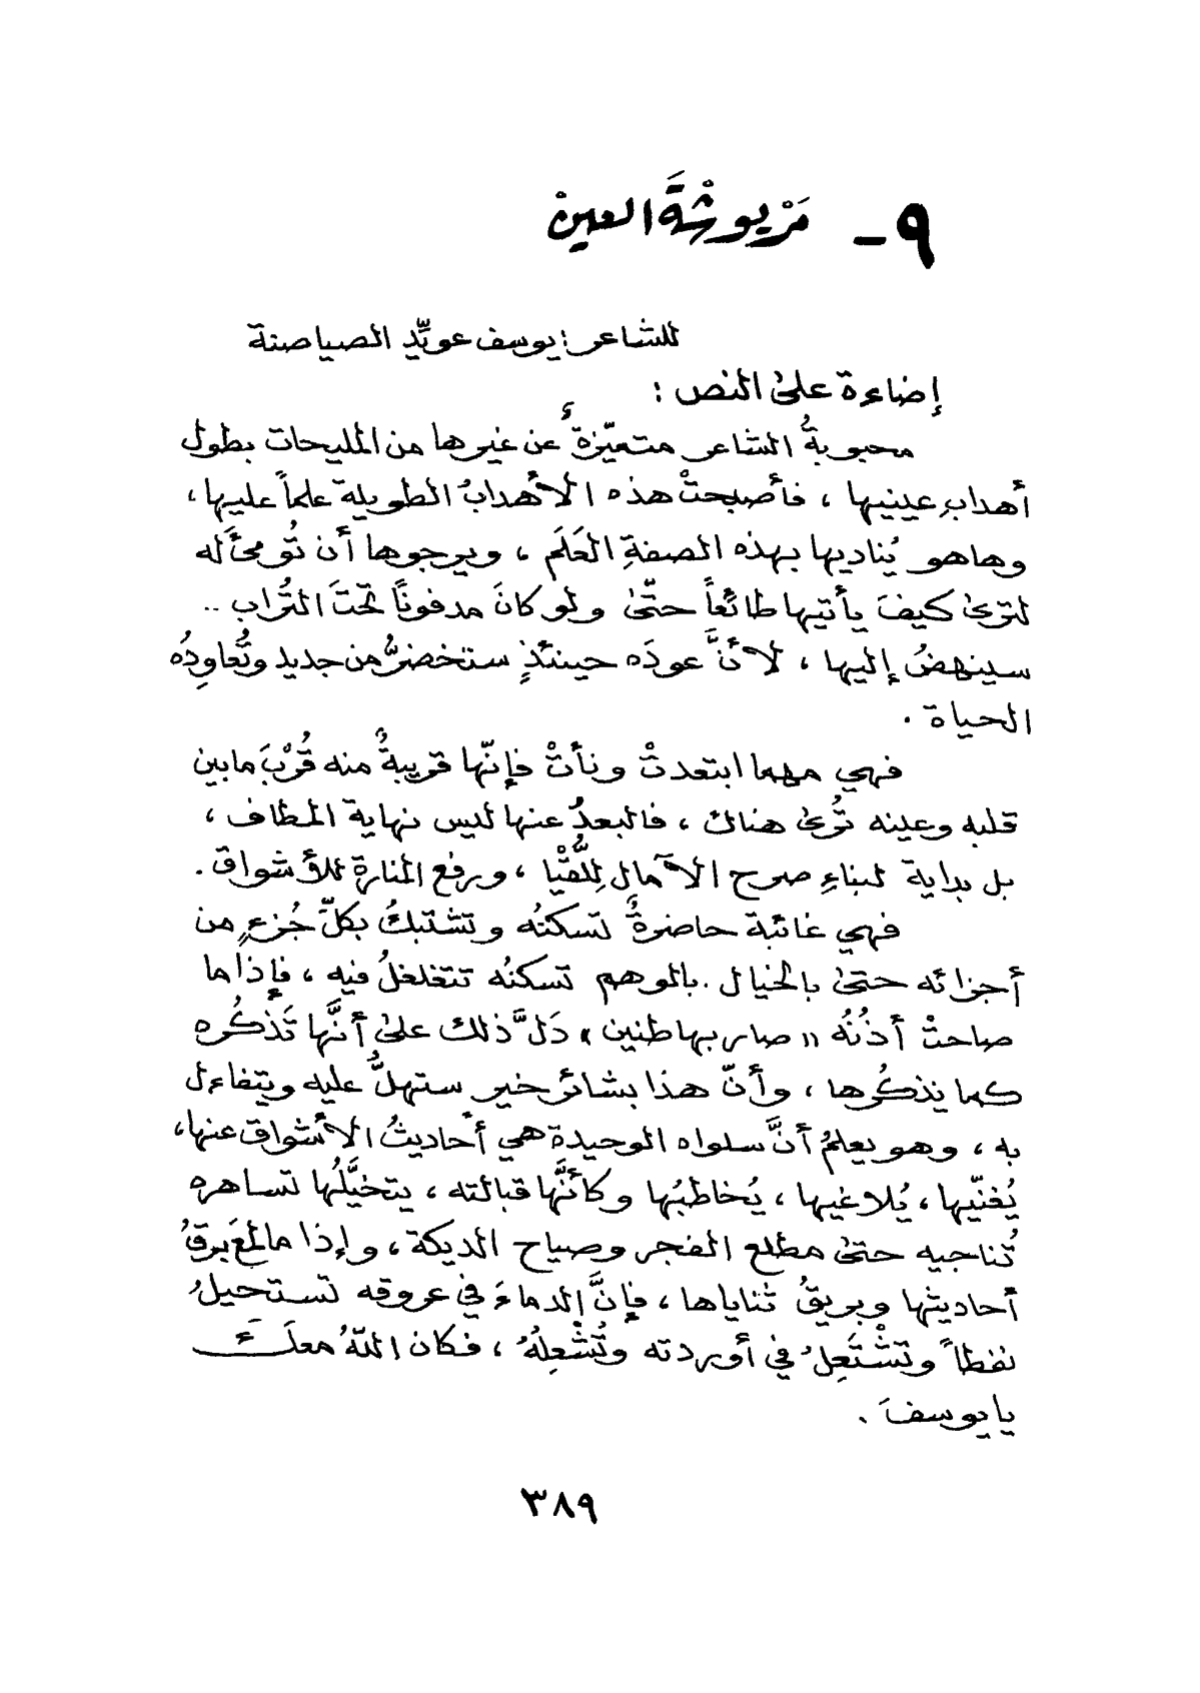 ٩ - مَرْيوشْةَ العينْ
للشاعر : يوسف عويّد الصياصنة
إضاءة على النص :
محبوبةُ الشاعر متميّزةٌ عن غيرها من المليحات بطول
أهدابِ عينيها ، فأصبحتْ هذه الأهدابُ الطويلة علماً عليها ،
وهاهو يُناديها بهذه الصفةِ العَلَم ، ويرجوها أن تُومئَ له
لترى كيفَ يأتيها طائعاً حتّى ولو كانَ مدفوناً تحتَ التُّراب ..
سينهضُ إليها ، لأنَّ عودَه حينئذٍ ستخضرُّ من جديد وتُعاوِدُه
الحياة .
فهي مهما ابتعدتْ ونأتْ فإنّها قريبةٌ منه قُرْبَ مابين
قلبه وعينه تُرى هناك ، فالبعدُ عنها ليس نهاية المطاف ،
بل بداية لبناءِ صرح الآمال لِلُّقْيا ، ورفع المنارة للأشواق .
فهي غائبة حاضرةٌ تسكنُه وتشتبكُ بكلّ جُزءٍ من
أجزائه حتى بالخيال . بالوهم تسكنُه تتغلغلُ فيه ، فإذا ما
صاحتْ أذُنُه « صار بها طنين » دَلَّ ذلك على أنَّها تَذْكُره
كما يذكُرها ، وأنّ هذا بشائر خير ستهلُّ عليه ويتفاءل
به ، وهو يعلمُ أنَّ سلواه الوحيدة هي أحاديثُ الأشواق عنها ،
يُغنّيها ، يُلاغيها ، يُخاطبُها وكأنَّها قبالته ، يتخيَّلُها تساهره
تُناجيه حتى مطلع الفجر وصياح الديكة ، وإذا مالمعَ برقُ
أحاديثها وبريقُ ثناياها ، فإنَّ الدماءَ في عروقه تستحيلُ
نفطاً وتشْتَعِلُ في أوردته وتُشْعِلُهُ ، فكان اللّهُ معكَ
يايوسفَ .
٣٨٩